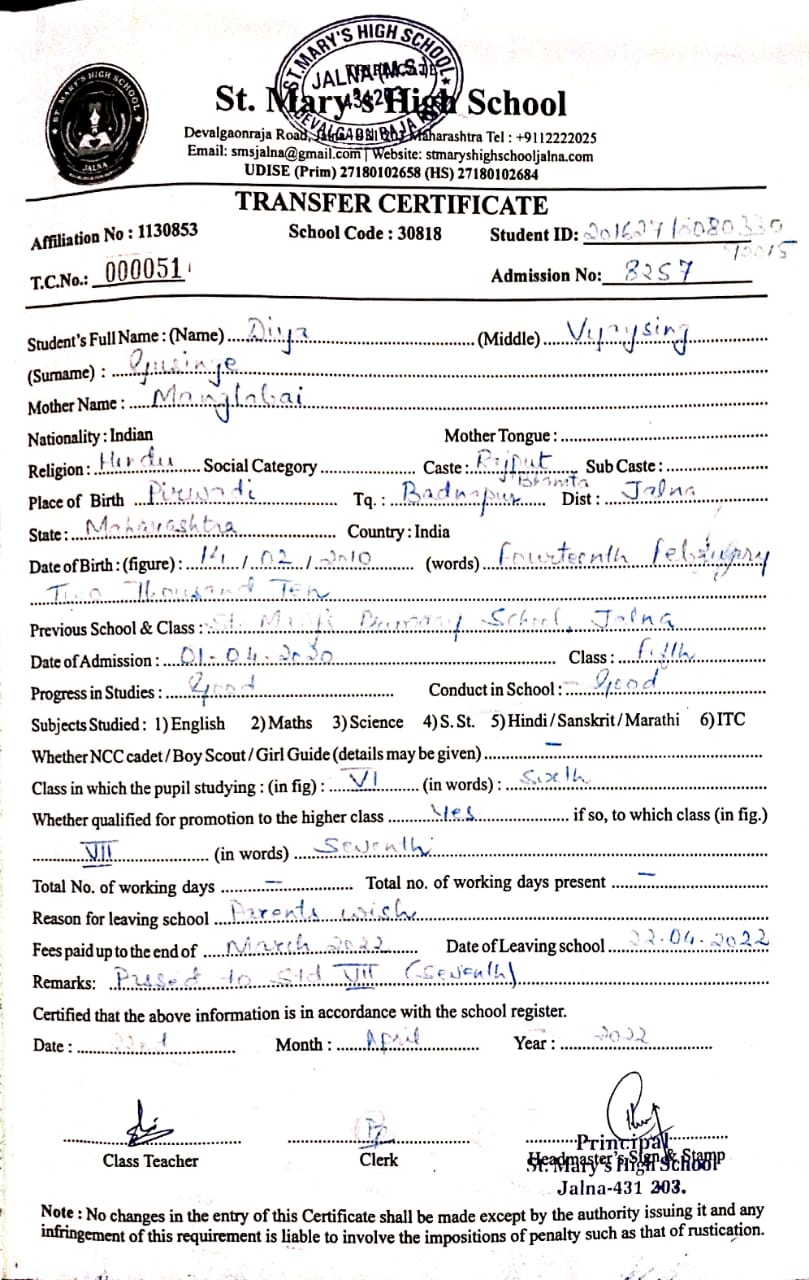 ST. MARY'S HIGH SCHOOL
JALNA (M.S.)
ST MARY'S HIGH SCHOOL
JALNA
St. Mary's High School
Devalgaonraja Road, Maharashtra Tel : +9112222025
Email: smsjalna@gmail.com | Website: stmaryshighschooljalna.com
UDISE (Prim) 27180102658 (HS) 27180102684
TRANSFER CERTIFICATE
Affiliation No : 1130853 School Code : 30818 Student ID:
T.C.No.: 000051 Admission No: 8257
Student's Full Name : (Name) Diya (Middle)
(Surname) :
Mother Name : Manglabai
Nationality : Indian Mother Tongue :
Religion : Hindu Social Category Caste : Rajput Bhamta Sub Caste :
Place of Birth Tq. : Badnapur Dist : Jalna
State : Maharashtra Country : India
Date of Birth : (figure) : 14 / 02 / 2010 (words) Fourteenth February
Two Thousand Ten
Previous School & Class : St. Mary's Primary School, Jalna
Date of Admission : 01-04-2020 Class : Fifth
Progress in Studies : Good Conduct in School : Good
Subjects Studied : 1) English 2) Maths 3) Science 4) S. St. 5) Hindi / Sanskrit / Marathi 6) ITC
Whether NCC cadet / Boy Scout / Girl Guide (details may be given) —
Class in which the pupil studying : (in fig) : VI (in words) : Sixth
Whether qualified for promotion to the higher class Yes if so, to which class (in fig.)
VII (in words) Seventh
Total No. of working days — Total no. of working days present —
Reason for leaving school Parents wish
Fees paid up to the end of March 2022 Date of Leaving school 22.04.2022
Remarks: Passed to Std VII (Seventh)
Certified that the above information is in accordance with the school register.
Date : Month : April Year : 2022
Class Teacher Clerk Headmaster's Sign & Stamp
Principal
St. Mary's High School
Jalna-431 203.
Note : No changes in the entry of this Certificate shall be made except by the authority issuing it and any
infringement of this requirement is liable to involve the impositions of penalty such as that of rustication.